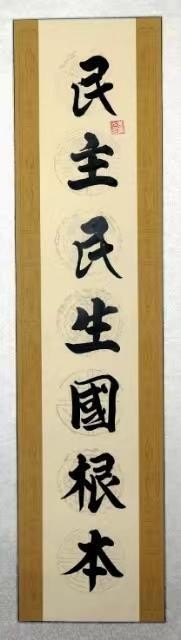 民主民生國根本